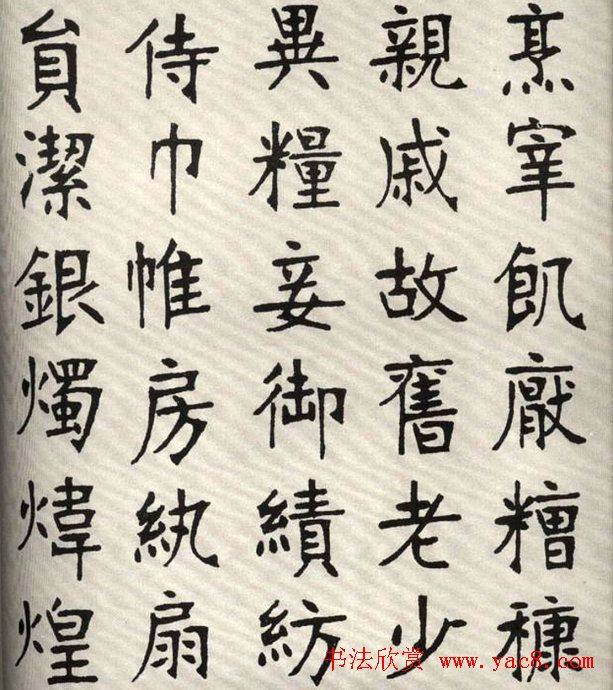 烹宰飢厭糟糠
親戚故舊老少
異糧妾御績紡
侍巾帷房紈扇
員潔銀燭煒煌
书法欣赏 www.yac8.com